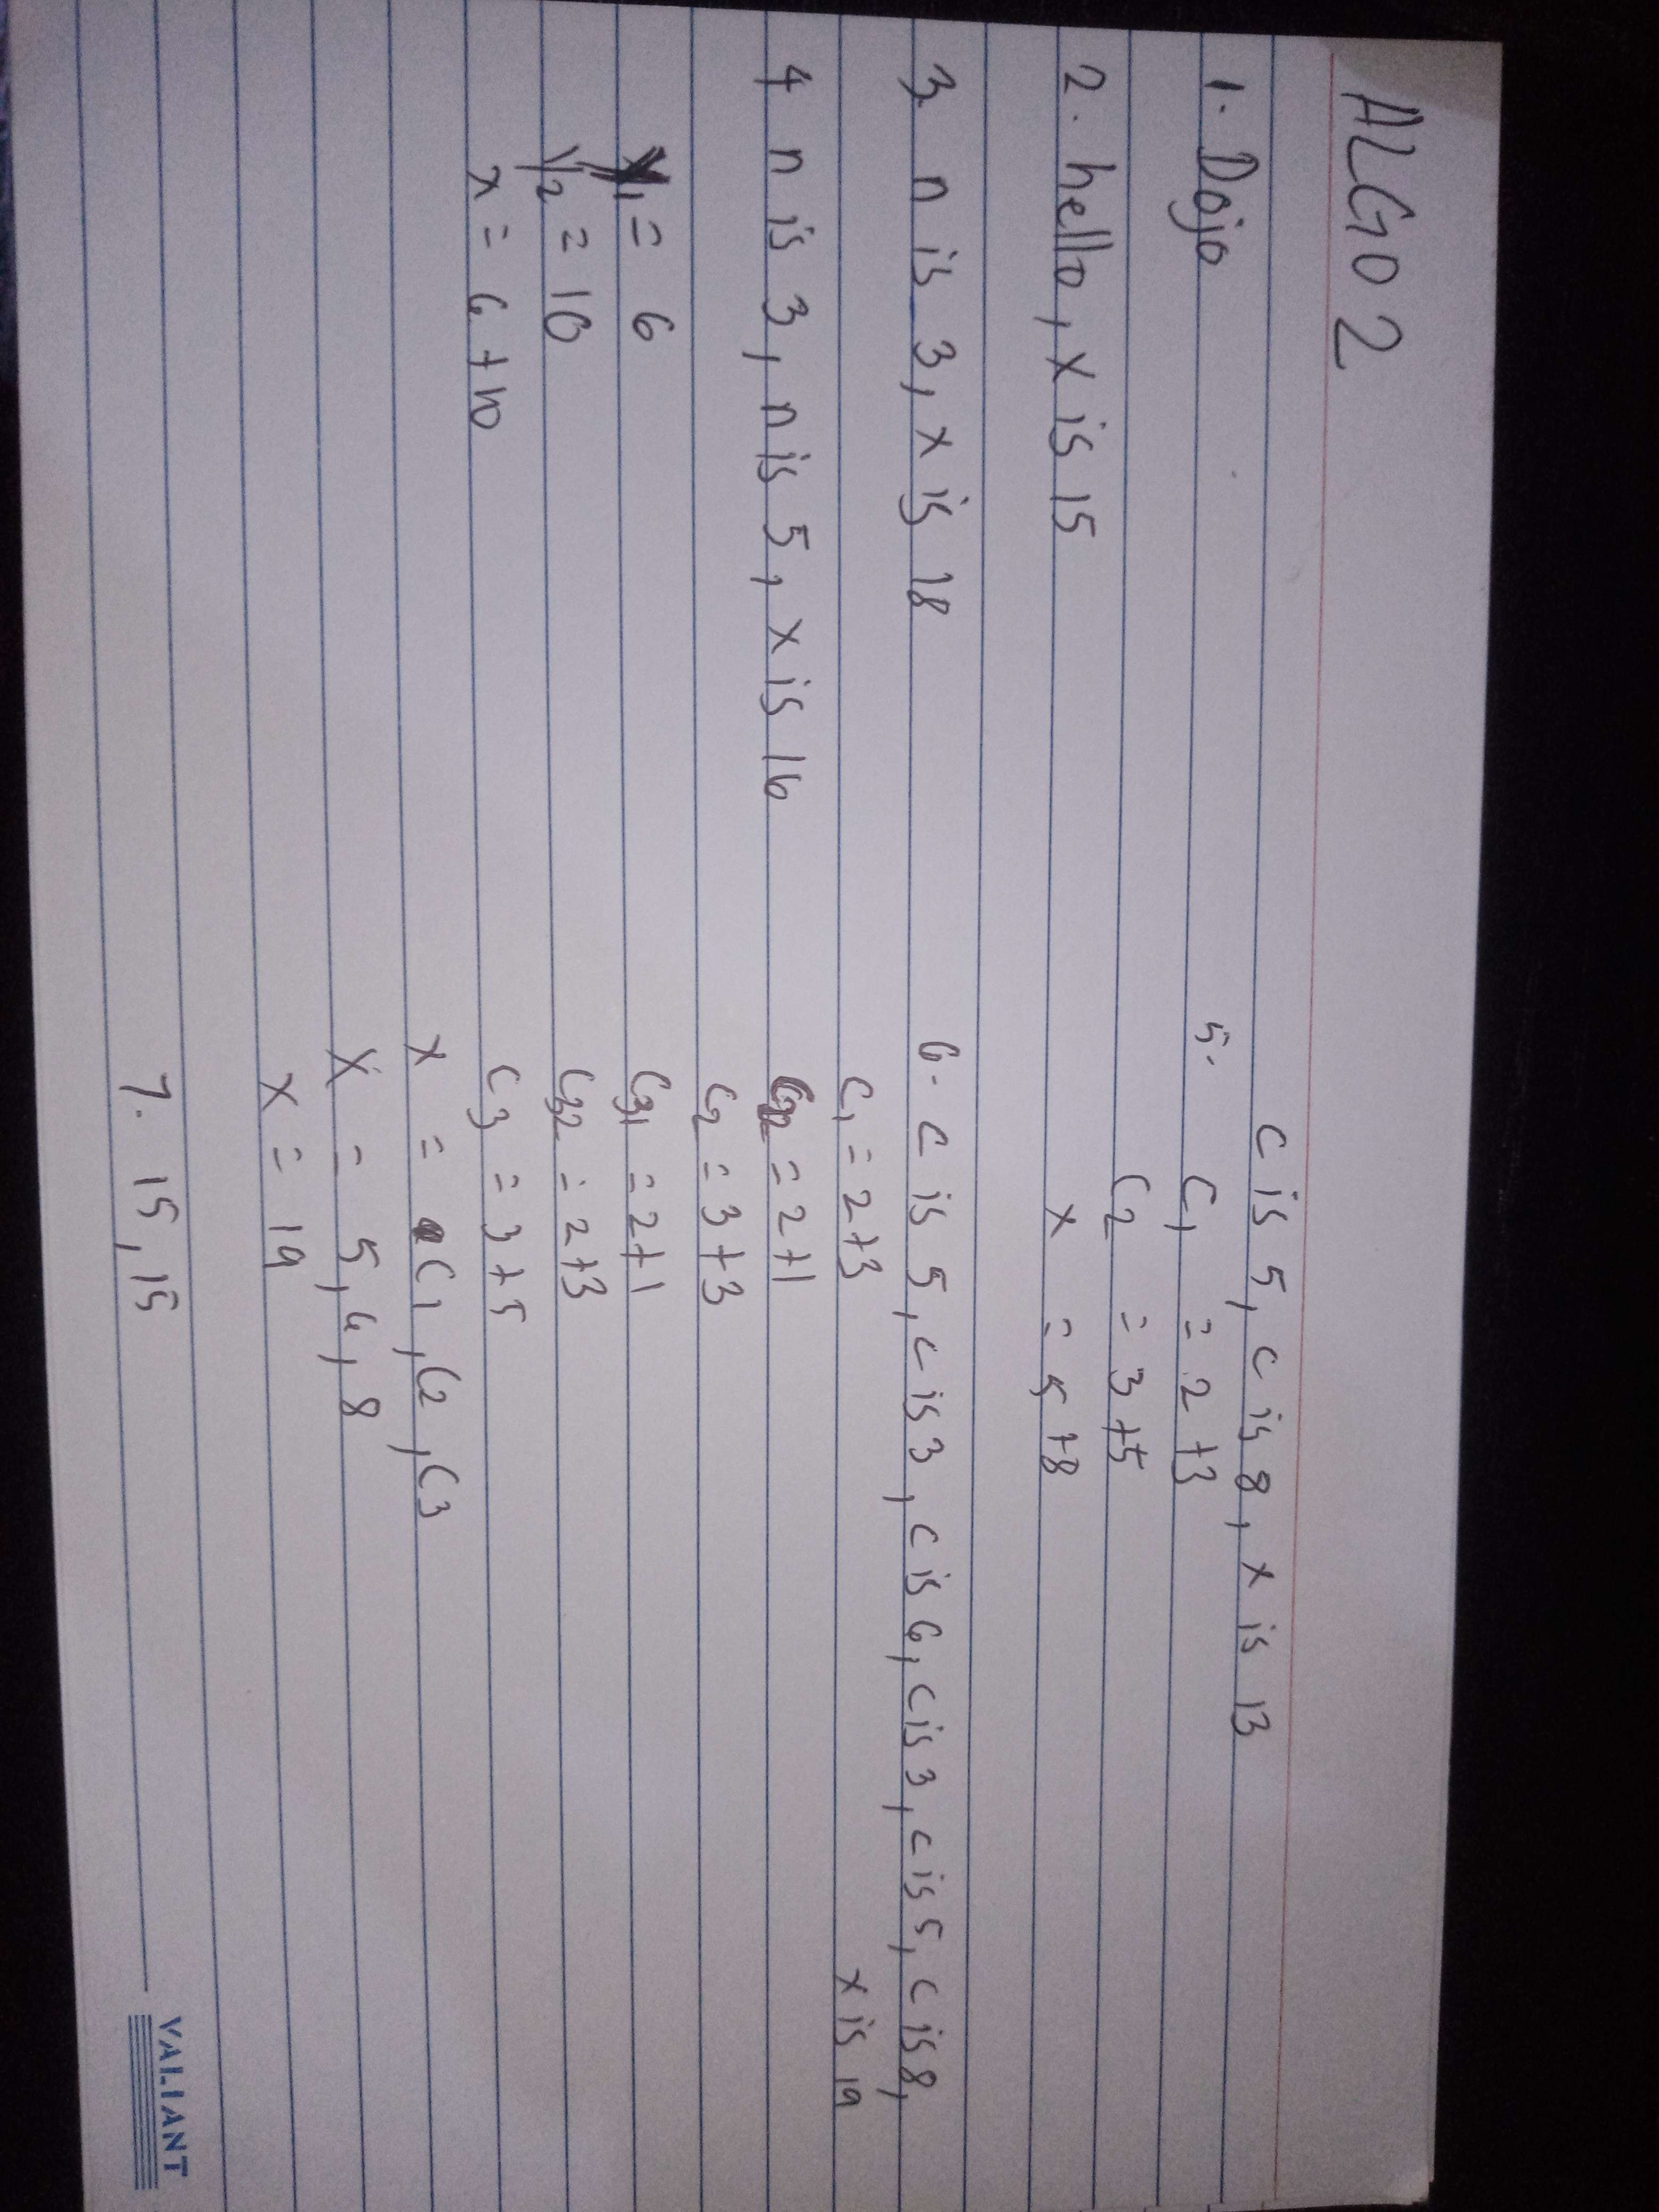 ALGO 2
1. Dojo
2. hello, x is 15
3 n is 3, x is 18
4 n is 3, n is 5, x is 16
= 6
y2 = 10
x = 6 + 10
c is 5, c is 8, x is 13
5. C1 = 2 + 3
C2 = 3 + 5
x = 5 + 8
6. c is 5, c is 3, c is 6, c is 3, c is 5, c is 8,
x is 19
C1 = 2 + 3
= 2 + 1
C2 = 3 + 3
C31 = 2 + 1
C32 = 2 + 3
C3 = 3 + 5
x = C1, C2, C3
x = 5, 6, 8
x = 19
7. 15, 15
VALIANT